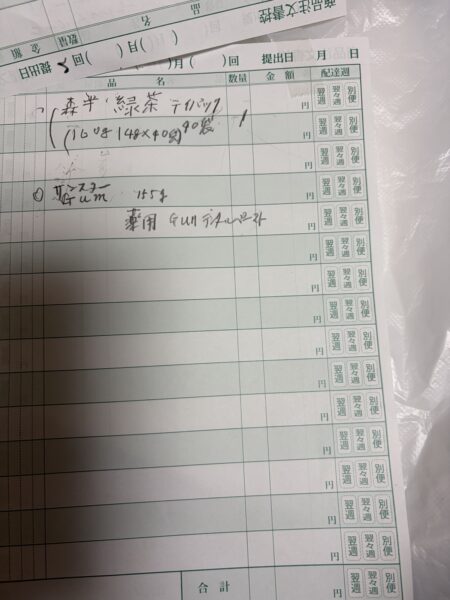 商品注文書控
品 名 数量 金 額
提出日 回 ( )月( )
( )月( )回 提出日 月 日
品 名 数量 金 額 配達週
森半・緑茶 ティバック 円 翌週 翌々週 別便
40袋 1 円 翌週 翌々週 別便
円 翌週 翌々週 別便
サンスター 155g 円 翌週 翌々週 別便
Gum
薬用 GUM デンタルペースト 円 翌週 翌々週 別便
円 翌週 翌々週 別便
円 翌週 翌々週 別便
円 翌週 翌々週 別便
円 翌週 翌々週 別便
円 翌週 翌々週 別便
円 翌週 翌々週 別便
円 翌週 翌々週 別便
円 翌週 翌々週 別便
円 翌週 翌々週 別便
円 翌週 翌々週 別便
合 計 円 翌週 翌々週 別便